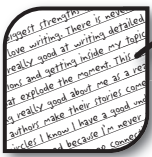 iggest strengths
love writing. There is never
really good at writing detailed
ions and getting inside my topic
at explode the moment. This
g really good about me as a rea
authors make their stories come
rcles I know I have a good un
and because i'm never